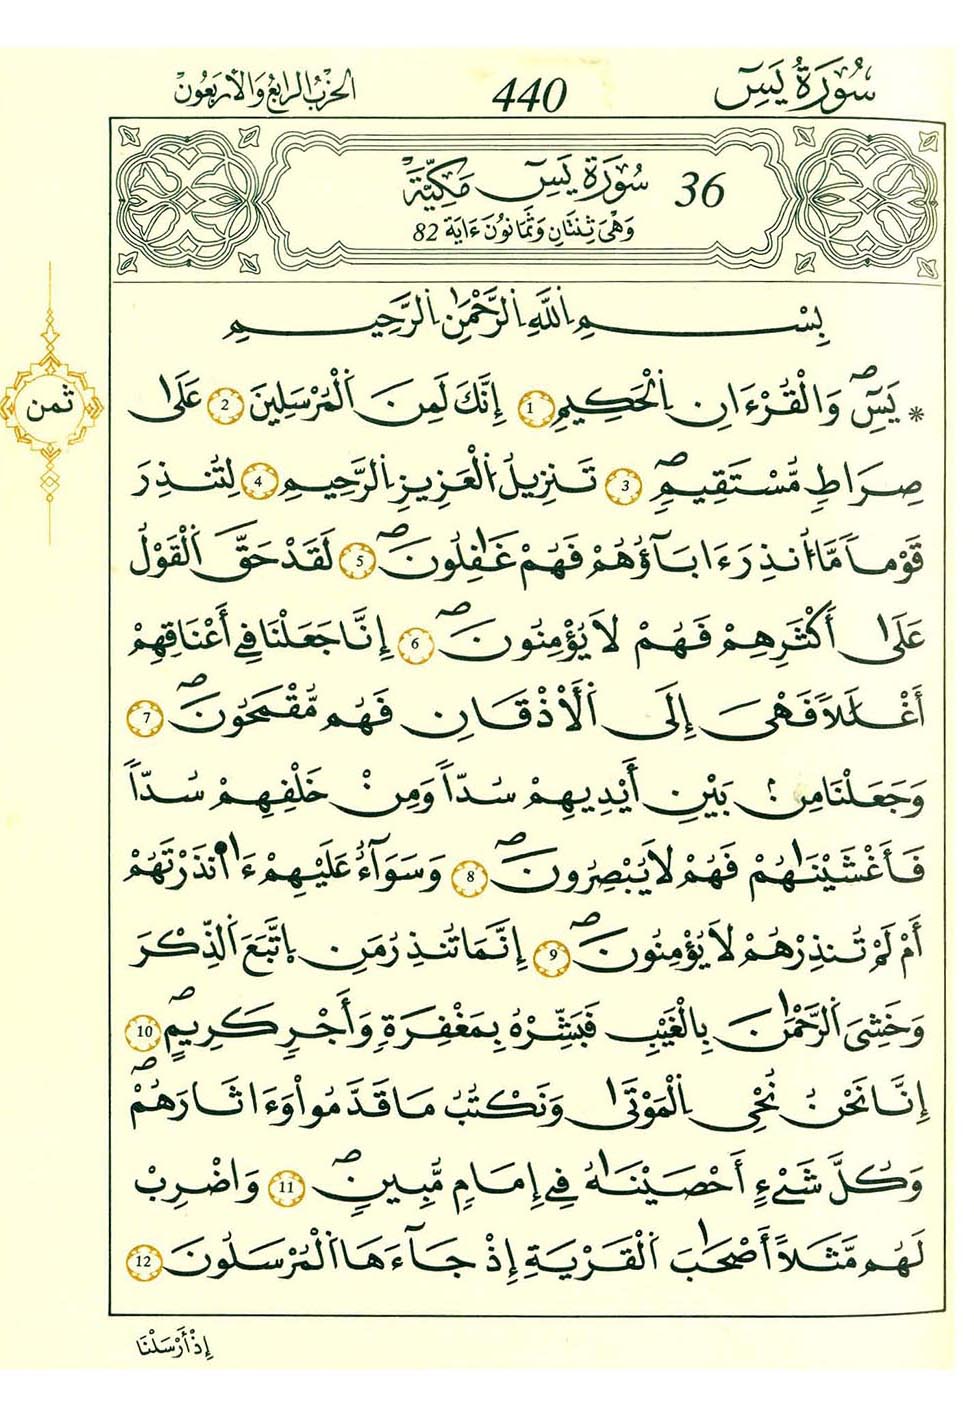 سُورَةُ يَسِٓ 440 الحِزْبُ الرَّابِعُ وَالْأَرْبَعُونَ
36 سُورَةُ يَسِٓ مَكِّيَّةٌ
وَهْىَ ثِنْتَانِ وَثَمَانُونَ ءَايَة 82
بِسْمِ اِ۬للَّهِ اِ۬لرَّحْمَٰنِ اِ۬لرَّحِيمِ
ثمن
* يَسِٓۖ وَالْقُرْءَانِ اِ۬لْحَكِيمِ 1 إِنَّكَ لَمِنَ اَ۬لْمُرْسَلِينَ 2 عَلَىٰ
صِرَاطٖ مُّسْتَقِيمٖۖ 3 تَنزِيلُ اُ۬لْعَزِيزِ اِ۬لرَّحِيمِ 4 لِتُنذِرَ
قَوْماٗ مَّا أُنذِرَ ءَابَآؤُهُمْ فَهُمْ غَٰفِلُونَۖ 5 لَقَدْ حَقَّ اَ۬لْقَوْلُ
عَلَىٰ أَكْثَرِهِمْ فَهُمْ لَا يُؤْمِنُونَۖ 6 إِنَّا جَعَلْنَا فِے أَعْنَاقِهِمْ
أَغْلَٰلاٗ فَهْىَ إِلَى اَ۬لْأَذْقَانِ فَهُم مُّقْمَحُونَۖ 7
وَجَعَلْنَا مِنۢ بَيْنِ أَيْدِيهِمْ سُدّاٗ وَمِنْ خَلْفِهِمْ سُدّاٗ
فَأَغْشَيْنَٰهُمْ فَهُمْ لَا يُبْصِرُونَۖ 8 وَسَوَآءٌ عَلَيْهِمْ ءَا۬نذَرْتَهُمْ
أَمْ لَمْ تُنذِرْهُمْ لَا يُؤْمِنُونَۖ 9 إِنَّمَا تُنذِرُ مَنِ اِ۪تَّبَعَ اَ۬لذِّكْرَ
وَخَشِىَ اَ۬لرَّحْمَٰنَ بِالْغَيْبِ فَبَشِّرْهُ بِمَغْفِرَةٖ وَأَجْرٖ كَرِيمٍۖ 10
إِنَّا نَحْنُ نُحْىِ اِ۬لْمَوْتَىٰ وَنَكْتُبُ مَا قَدَّمُواْ وَءَاثَارَهُمْۖ
وَكُلَّ شَےْءٍ أَحْصَيْنَٰهُ فِے إِمَامٖ مُّبِينٖۖ 11 وَاضْرِبْ
لَهُم مَّثَلاً أَصْحَٰبَ اَ۬لْقَرْيَةِ إِذْ جَآءَهَا اَ۬لْمُرْسَلُونَ 12
إِذْ أَرْسَلْنَا